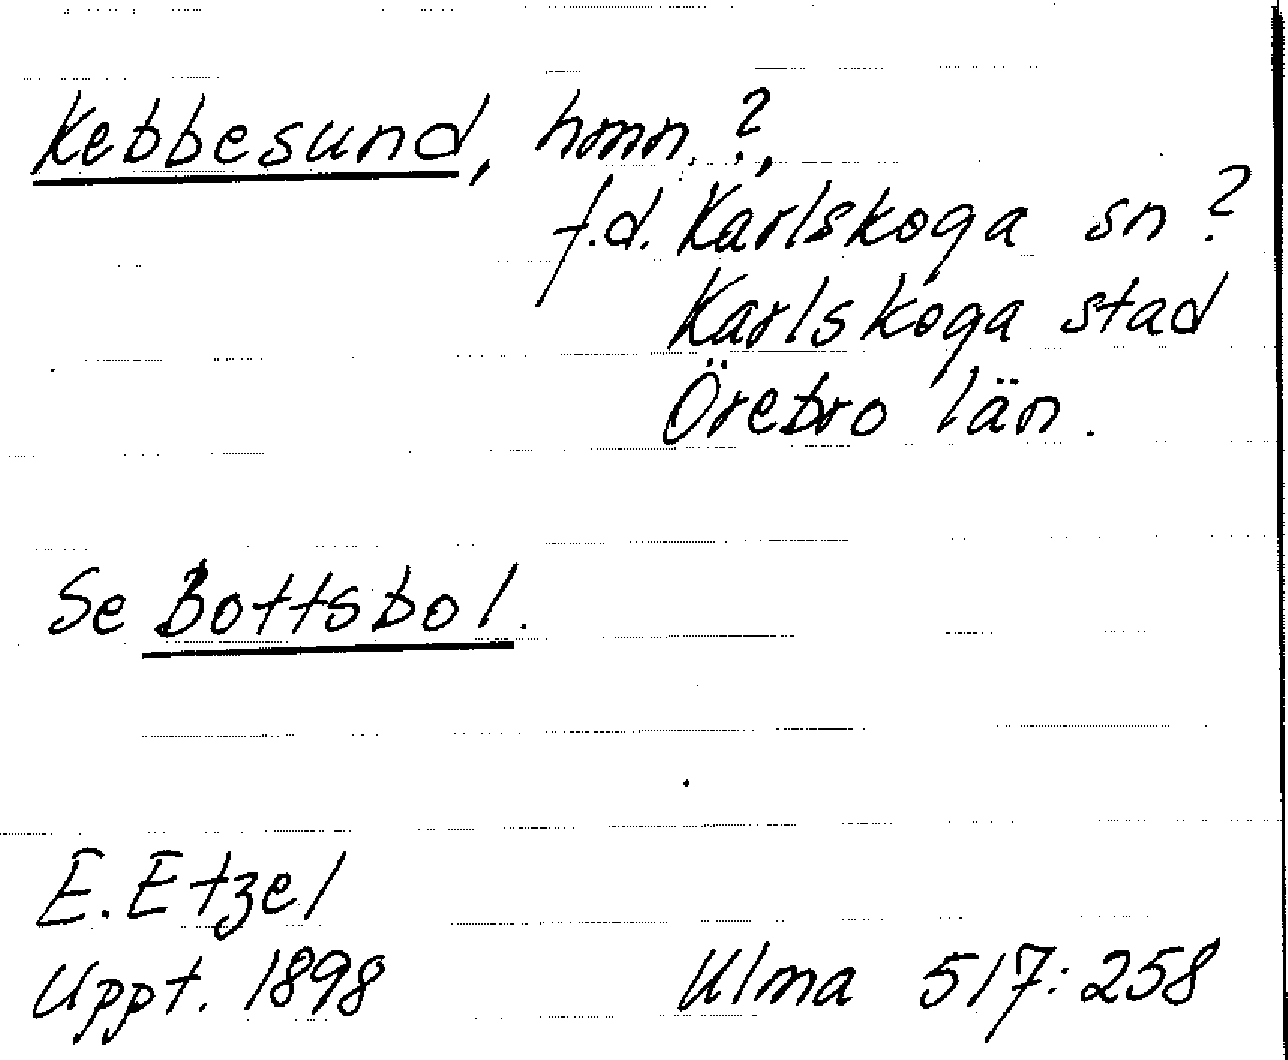 Kebbesund, hmn. ?,
f.d. Karlskoga sn ?
Karlskoga stad
Örebro län.
Se Bottsbol.
E. Etzel
Uppt. 1898 Ulma 517:258